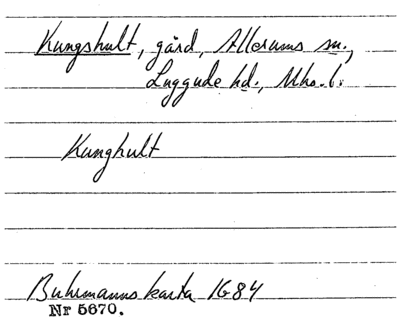 Kungshult, gård, Allerums sn.,
Luggude hd., Mhs. l.
Kunghult
Buhrmanns karta 1684
Nr 5670.